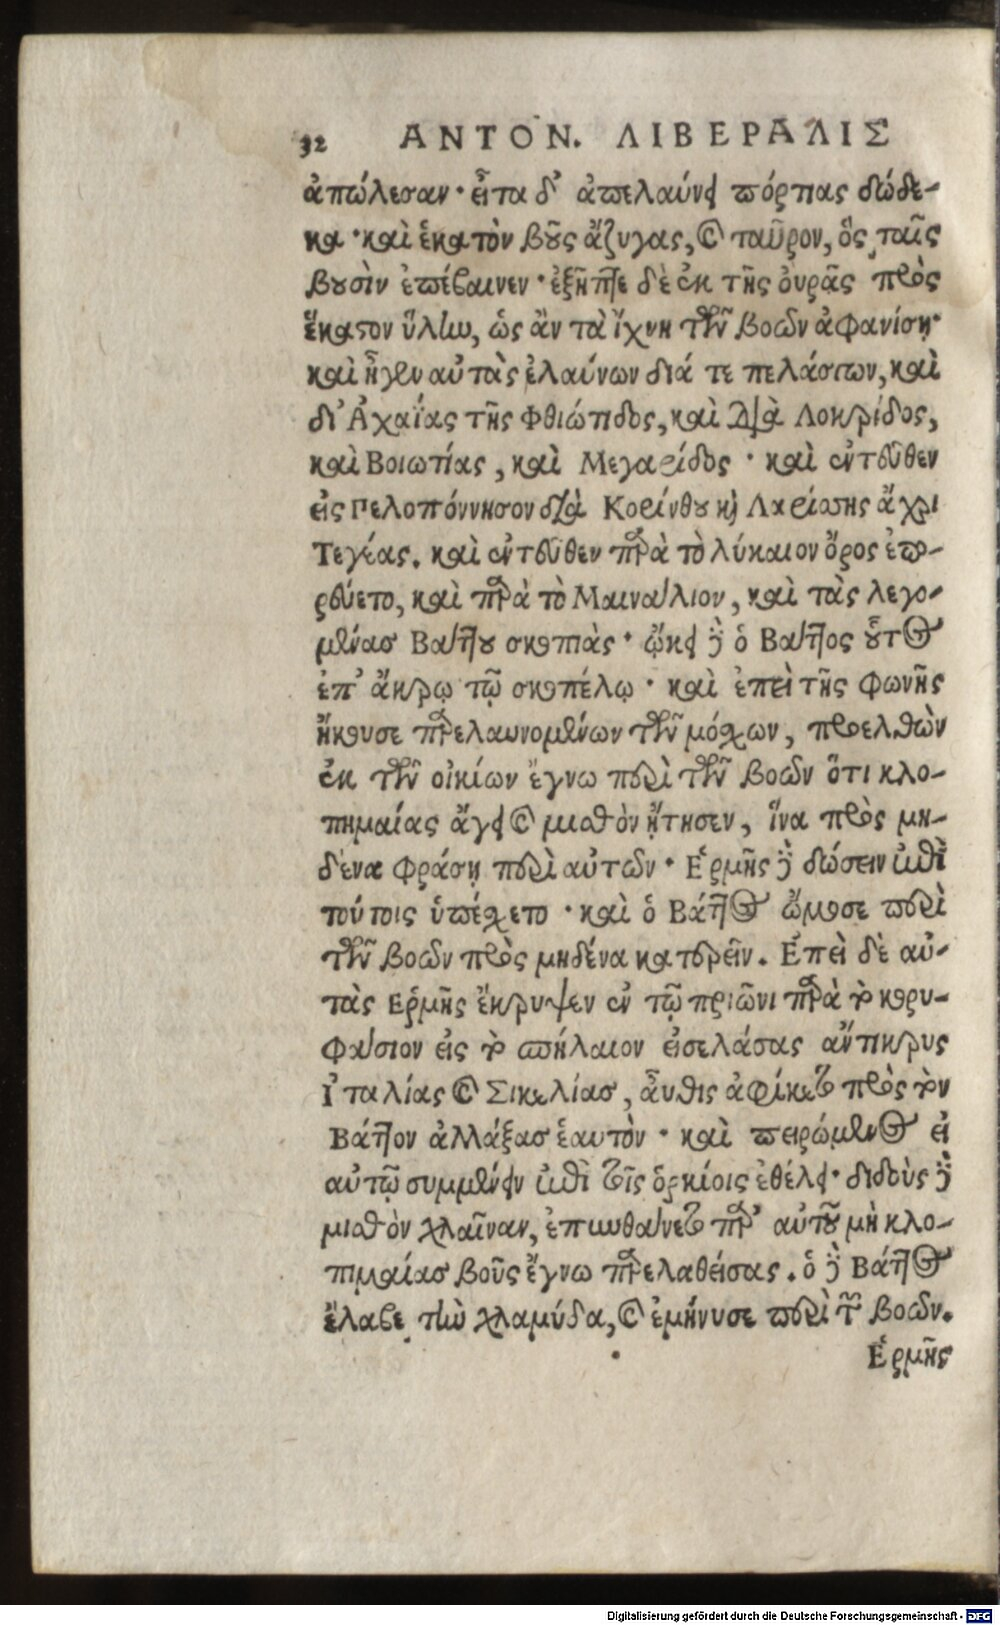 32 ΑΝΤΟΝ. ΛΙΒΕΡΑΛΙΣ
ἀπώλεσαν· εἶτα δ' ἀπελαύνει πόρτιας δώδε-
κα· καὶ ἑκατὸν βοῦς ἄζυγας, καὶ ταῦρον, ὃς ταῖς
βουσὶν ἐπέβαινεν· ἐξῆπτε δὲ ἐκ τῆς ὀυρᾶς πρὸς
ἕκαστον ὕλην, ὡς ἂν τὰ ἴχνη τῶν βοῶν ἀφανίσῃ·
καὶ ἦγεν αὐτὰς ἐλαύνων διά τε πελάσγων, καὶ
δι' Ἀχαΐας τῆς Φθιώτιδος, καὶ διὰ Λοκρίδος,
καὶ Βοιωτίας, καὶ Μεγαρίδος· καὶ ἐντεῦθεν
εἰς Πελοπόννησον διὰ Κορίνθου καὶ Λαρίσσης ἄχρι
Τεγέας. καὶ ἐντεῦθεν παρὰ τὸ λύκαιον ὄρος ἐπο-
ρεύετο, καὶ παρὰ τὸ Μαινάλιον, καὶ τὰς λεγο-
μένας Βάττου σκοπιὰς· ᾤκει δὲ ὁ Βάττος οὗτος
ἐπ' ἄκρῳ τῷ σκοπέλῳ· καὶ ἐπεὶ τῆς φωνῆς
ἤκουσε παρελαυνομένων τῶν μόσχων, προελθὼν
ἐκ τῶν οἰκίων ἔγνω περὶ τῶν βοῶν ὅτι κλο-
πημαίας ἄγει καὶ μισθὸν ᾔτησεν, ἵνα πρὸς μη-
δένα φράσῃ περὶ αὐτῶν· Ἑρμῆς δὲ δώσειν ἐπὶ
τούτοις ὑπέσχετο· καὶ ὁ Βάττος ὤμοσε περὶ
τῶν βοῶν πρὸς μηδένα κατερεῖν. Ἐπεὶ δὲ αὐ-
τὰς Ἑρμῆς ἔκρυψεν ἐν τῷ πριῶνι παρὰ τὸ κορυ-
φάσιον εἰς τὸ σπήλαιον εἰσελάσας ἄντικρυς
Ἰταλίας καὶ Σικελίας, αὖθις ἀφίκετο πρὸς τὸν
Βάττον ἀλλάξας ἑαυτὸν· καὶ πειρώμενος εἰ
αὐτῷ συμμένειν ἐπὶ τοῖς ὁρκίοις ἐθέλει· διδοὺς δὲ
μισθὸν χλαῖναν, ἐπυνθάνετο παρ' αὐτοῦ μὴ κλο-
πιμαίας βοῦς ἔγνω παρελαθείσας. ὁ δὲ Βάττος
ἔλαβε τὴν χλαμύδα, καὶ ἐμήνυσε περὶ τῶν βοῶν.
Ἑρμῆς
Digitalisierung gefördert durch die Deutsche Forschungsgemeinschaft - DFG